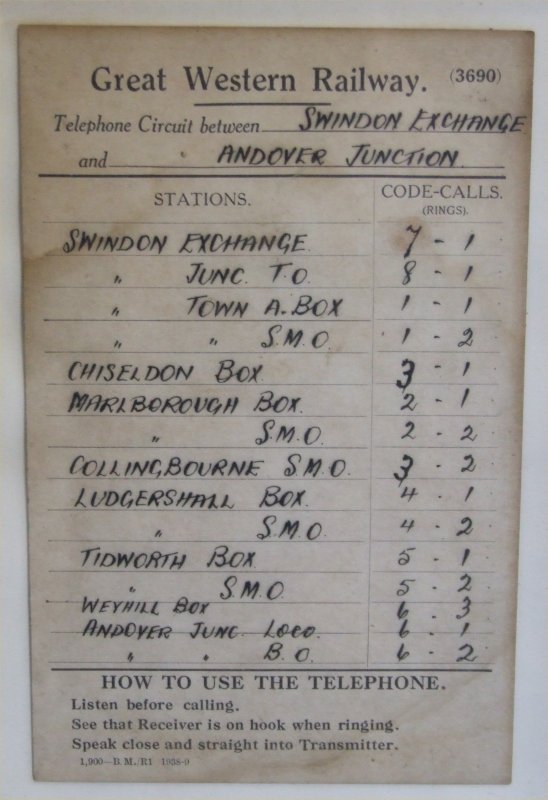 Great Western Railway. (3690)
Telephone Circuit between SWINDON EXCHANGE
and ANDOVER JUNCTION.
STATIONS. CODE-CALLS.
(RINGS).
SWINDON EXCHANGE. 7 - 1
" JUNC. T.O. 8 - 1
" TOWN A. BOX 1 - 1
" " S.M.O. 1 - 2
CHISELDON BOX 3 - 1
MARLBOROUGH BOX. 2 - 1
" S.M.O. 2 - 2
COLLINGBOURNE S.M.O. 3 - 2
LUDGERSHALL BOX. 4 - 1
" S.M.O. 4 - 2
TIDWORTH BOX 5 - 1
" S.M.O. 5 - 2
WEYHILL BOX 6 - 3
ANDOVER JUNC. LOCO. 6 - 1
" " B.O. 6 - 2
HOW TO USE THE TELEPHONE.
Listen before calling.
See that Receiver is on hook when ringing.
Speak close and straight into Transmitter.
1,900—B.M./R1 1938-9